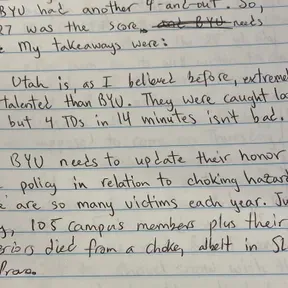 BYU had another 4-and-out. So,
27 was the score. and BYU needs
e My takeaways were:
Utah is, as I believed before, extreme
talented than BYU. They were caught loo
but 4 TDs in 14 minutes isn't bad.
BYU needs to update their honor
policy in relation to choking hazard
e are so many victims each year. Ju
y, 105 campus members plus their
died from a choke, albeit in SL
Provo.